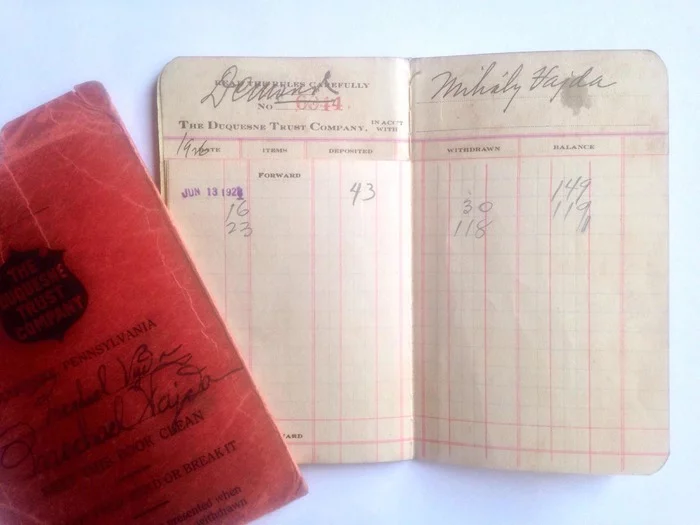 READ THE RULES CAREFULLY
Demand
NO 6944
THE DUQUESNE TRUST COMPANY, IN ACC'T WITH
Mihály Vajda
DATE ITEMS DEPOSITED WITHDRAWN BALANCE
FORWARD
JUN 13 192 43 149
16 30 119
23 118 1
WARD
THE
DUQUESNE
TRUST
COMPANY
PENNSYLVANIA
Michael Vajda
Michael Vajda
BOOK CLEAN
D OR BREAK IT
presented when
withdrawn